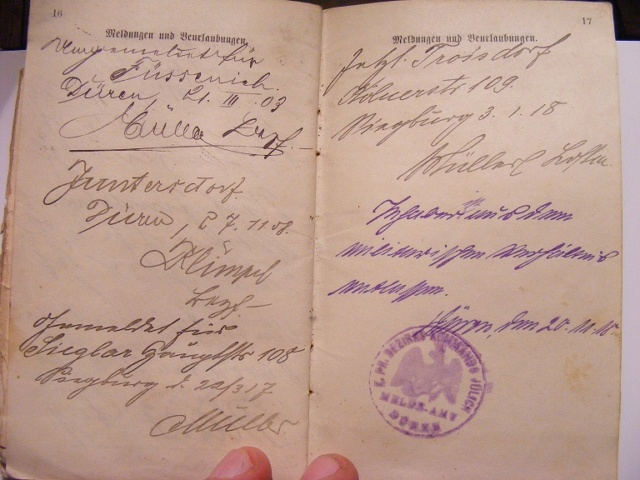 16
Meldungen und Beurlaubungen.
Angemeldet für
Füssenich.
Düren, 21. III 03
Müller Bezf.
Juntersdorf
Düren, 2 7. 11 08.
Klimpel
Bezf
Angemeldet für
Sieglar Hauptstr 108
Siegburg d 22/3 17
Müller
17
Meldungen und Beurlaubungen.
Jetzt Troisdorf
Kölnerstr 109
Siegburg 3. 1. 18
Müller
Inhaber aus dem
militärischen Verhältnis
entlassen.
Düren, den 20. 11. 18
K. PR. BEZIRKSKOMMANDO JÜLICH
MELDE-AMT
DÜREN